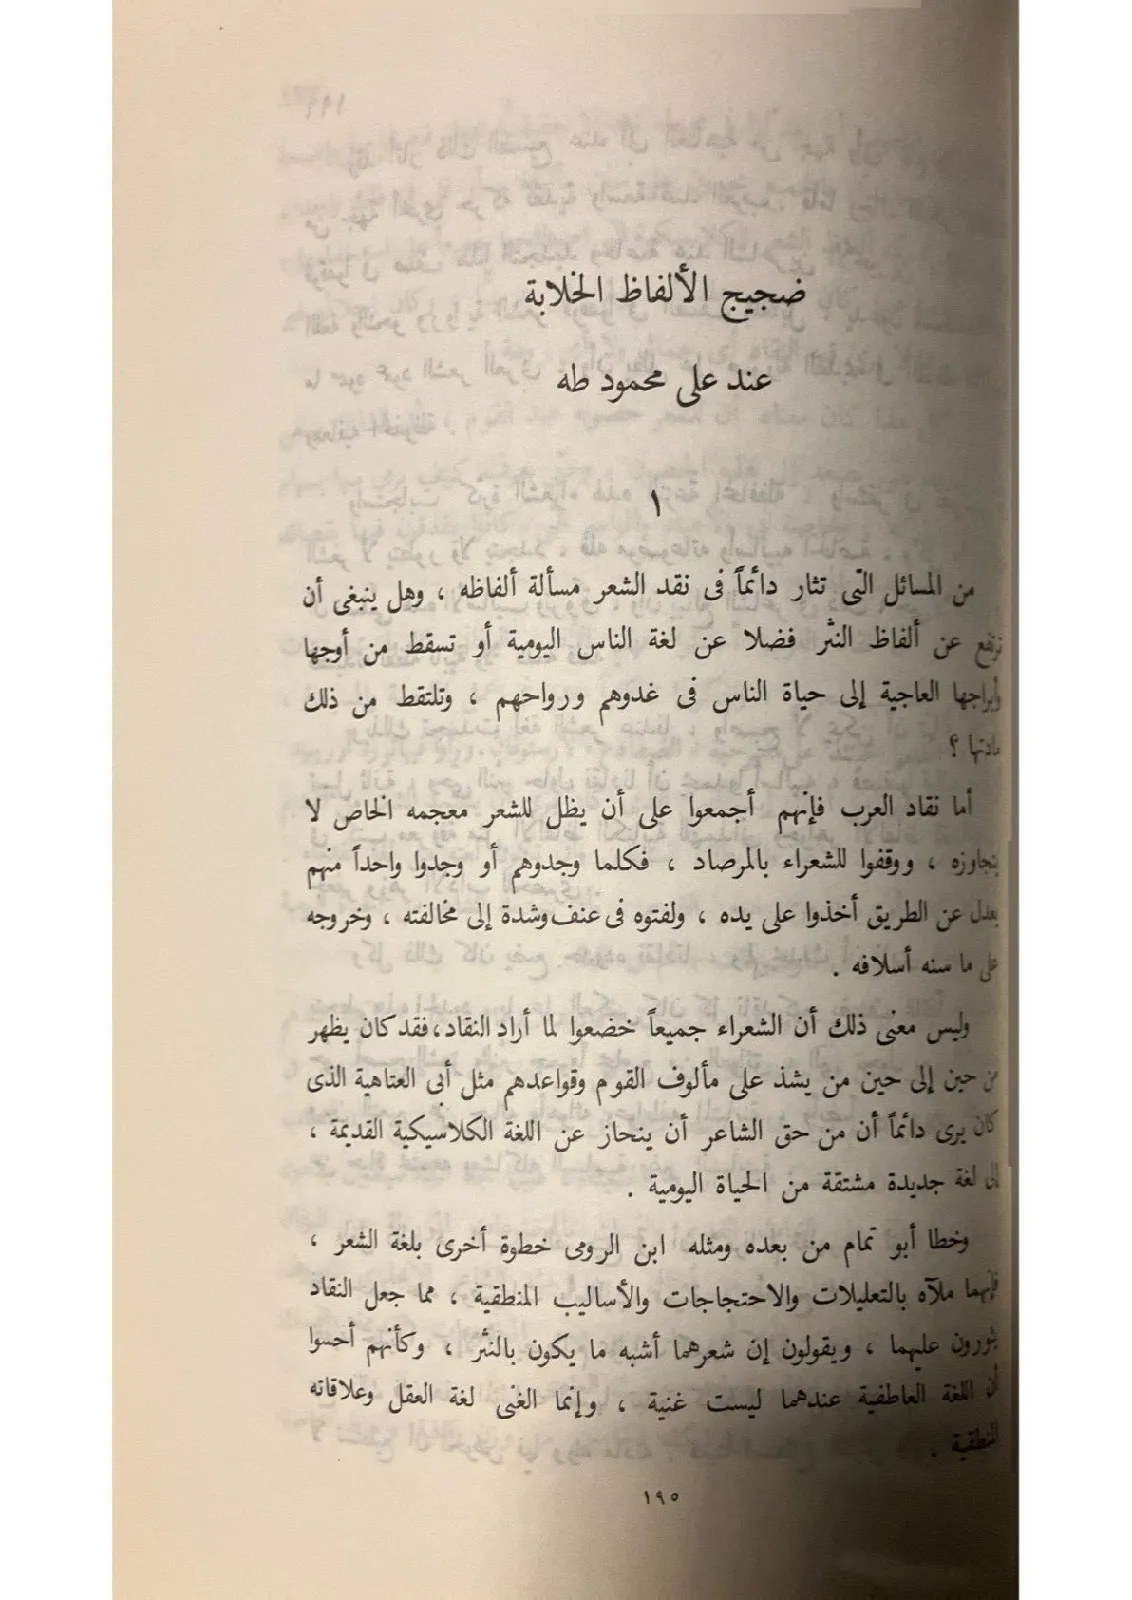 ضجيج الألفاظ الخلابة
عند على محمود طه
١
من المسائل التى تثار دائماً فى نقد الشعر مسألة ألفاظه ، وهل ينبغى أن
ترتفع عن ألفاظ النثر فضلا عن لغة الناس اليومية أو تسقط من أوجها
وأبراجها العاجية إلى حياة الناس فى غدوهم ورواحهم ، وتلتقط من ذلك
مادتها ؟
أما نقاد العرب فإنهم أجمعوا على أن يظل للشعر معجمه الخاص لا
يتجاوزه ، ووقفوا للشعراء بالمرصاد ، فكلما وجدوهم أو وجدوا واحداً منهم
يعدل عن الطريق أخذوا على يده ، ولفتوه فى عنف وشدة إلى مخالفته ، وخروجه
على ما سنه أسلافه .
وليس معنى ذلك أن الشعراء جميعاً خضعوا لما أراد النقاد، فقد كان يظهر
من حين إلى حين من يشذ على مألوف القوم وقواعدهم مثل أبى العتاهية الذى
كان يرى دائماً أن من حق الشاعر أن ينحاز عن اللغة الكلاسيكية القديمة ،
إلى لغة جديدة مشتقة من الحياة اليومية .
وخطا أبو تمام من بعده ومثله ابن الرومى خطوة أخرى بلغة الشعر ،
فإنهما ملآه بالتعليلات والاحتجاجات والأساليب المنطقية ، مما جعل النقاد
يثورون عليهما ، ويقولون إن شعرهما أشبه ما يكون بالنثر ، وكأنهم أحسوا
أن اللغة العاطفية عندهما ليست غنية ، وإنما الغنى لغة العقل وعلاقاته
المنطقية .
١٩٥